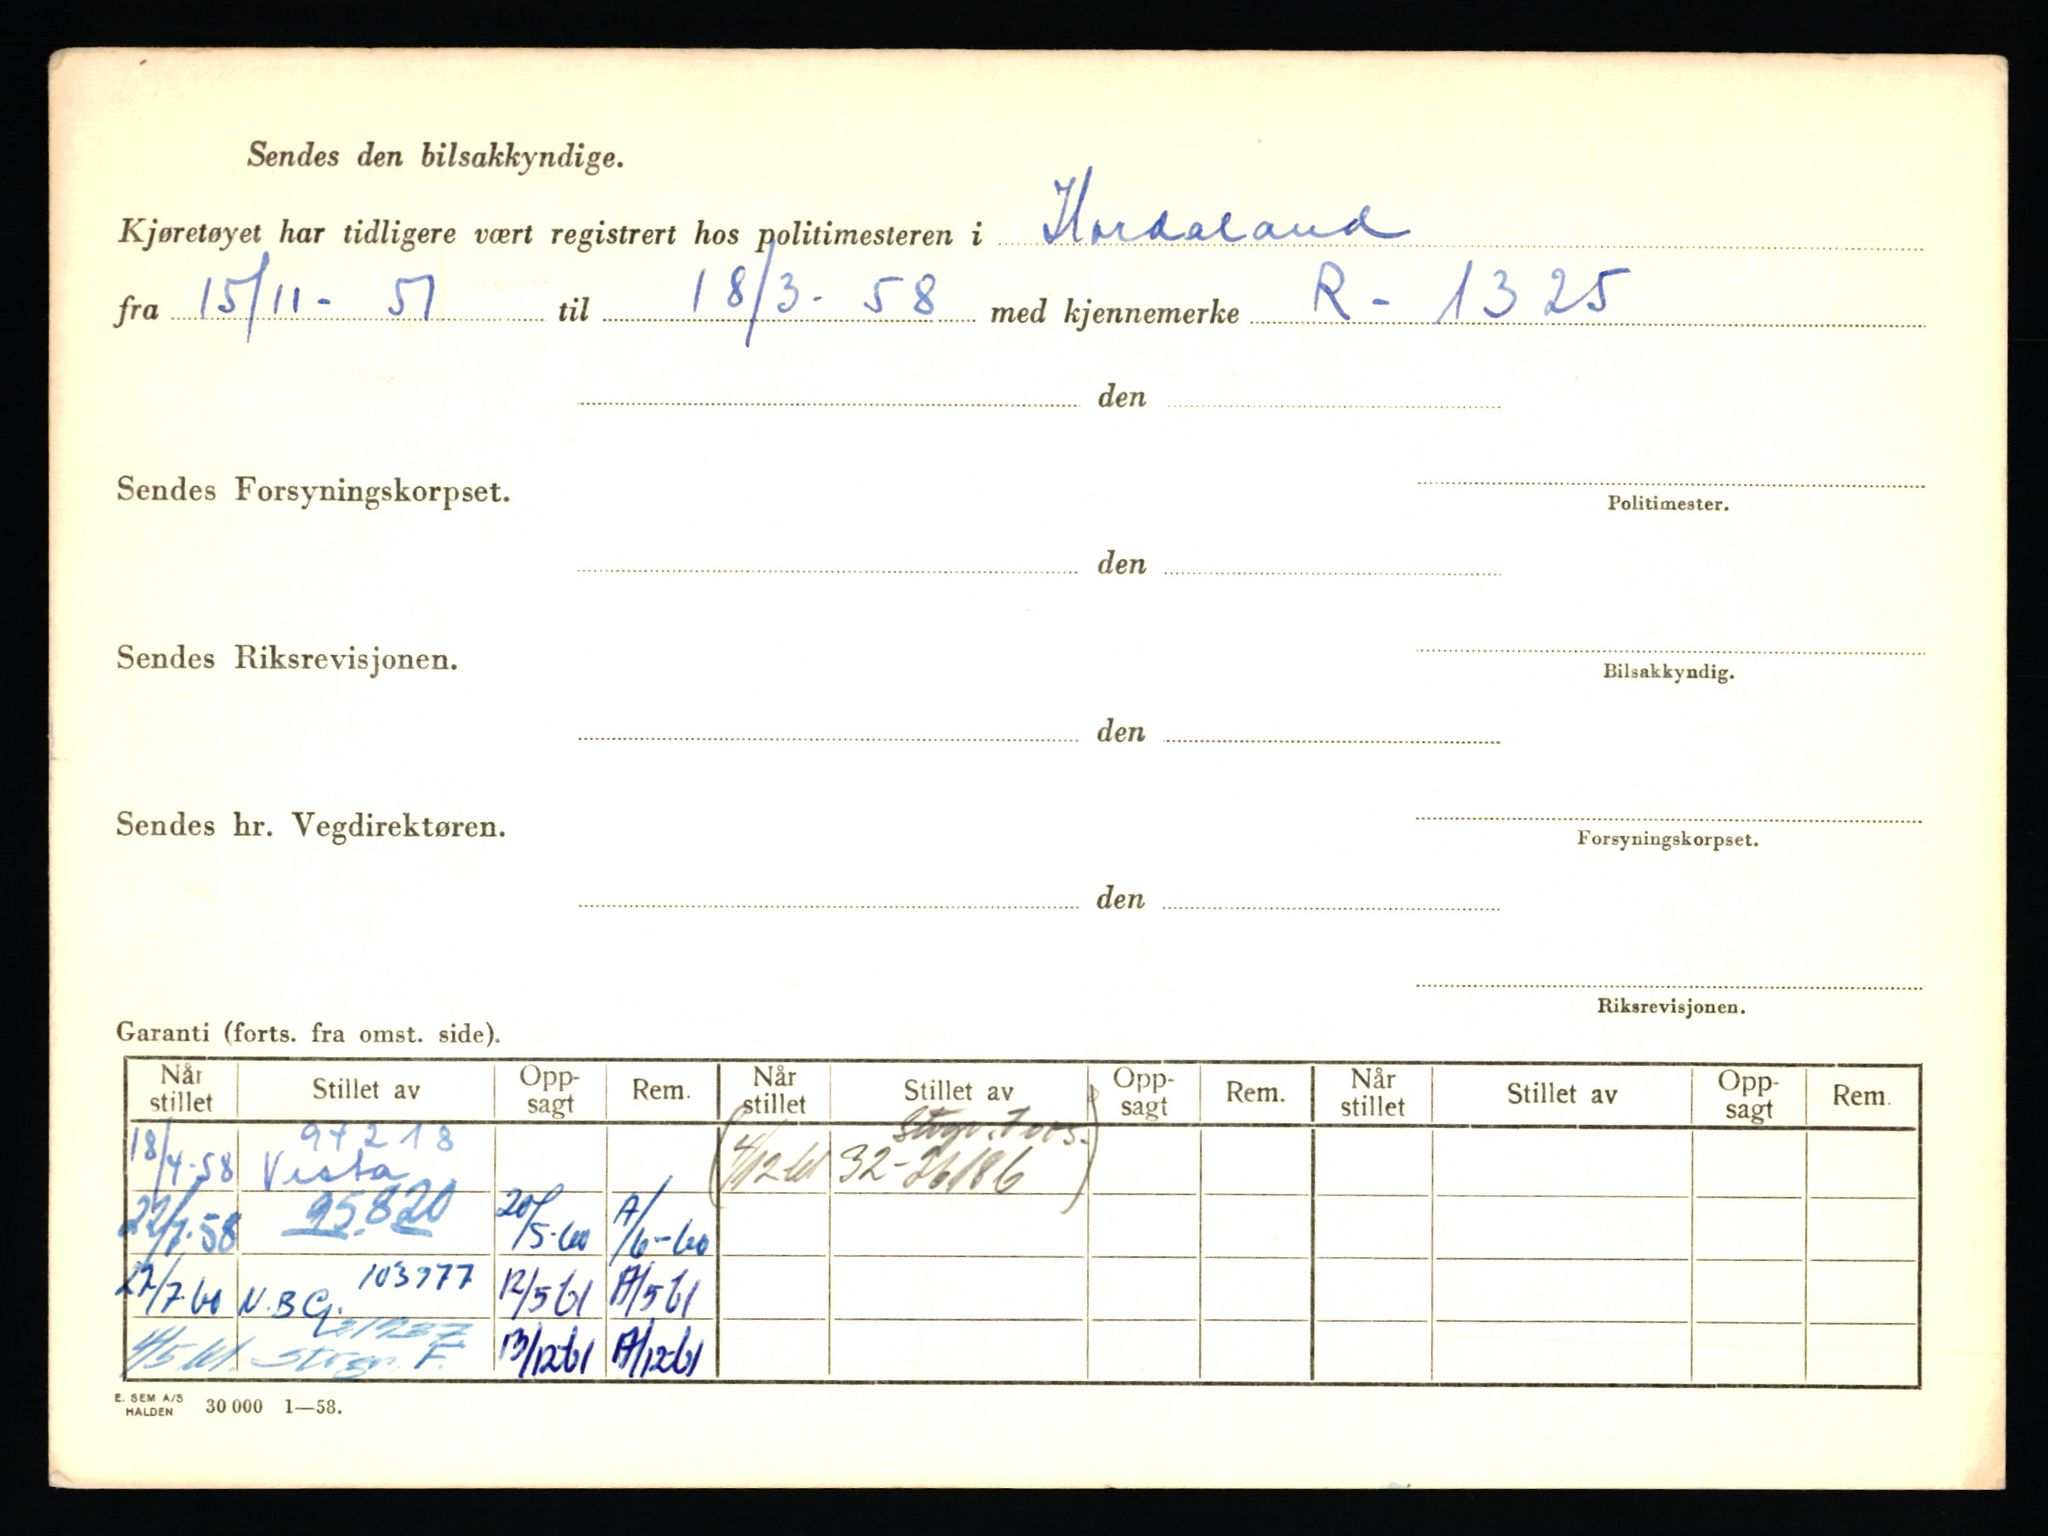 Sendes den bilsakkyndige.
Kjøretøyet har tidligere vært registrert hos politimesteren i Hordaland
fra 15/11- 51 til 18/3- 58 med kjennemerke R - 1325
den
Sendes Forsyningskorpset.
Politimester.
den
Sendes Riksrevisjonen.
Bilsakkyndig.
den
Sendes hr. Vegdirektøren.
Forsyningskorpset.
den
Riksrevisjonen.
Garanti (forts. fra omst. side).
Når stillet Stillet av Opp- sagt Rem. Når stillet Stillet av Opp- sagt Rem. Når stillet Stillet av Opp- sagt Rem.
97218
18/4-58 Vesta
(4/12-61 32-26186)
22/7-58 95820 20/5-60 A/6-60
27/7-60 N.B.G. 103977 12/5-61 A/5-61
13/12-61 A/12-61
E. SEM A/S
HALDEN 30 000 1—58.